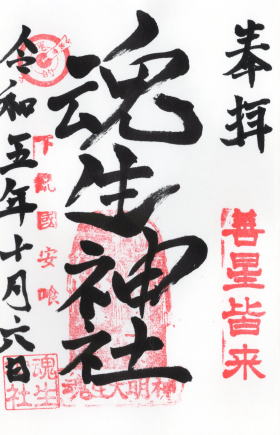 奉拝
善星皆来
魂生神社
下総國安喰
令和五年十月六日
魂生
社